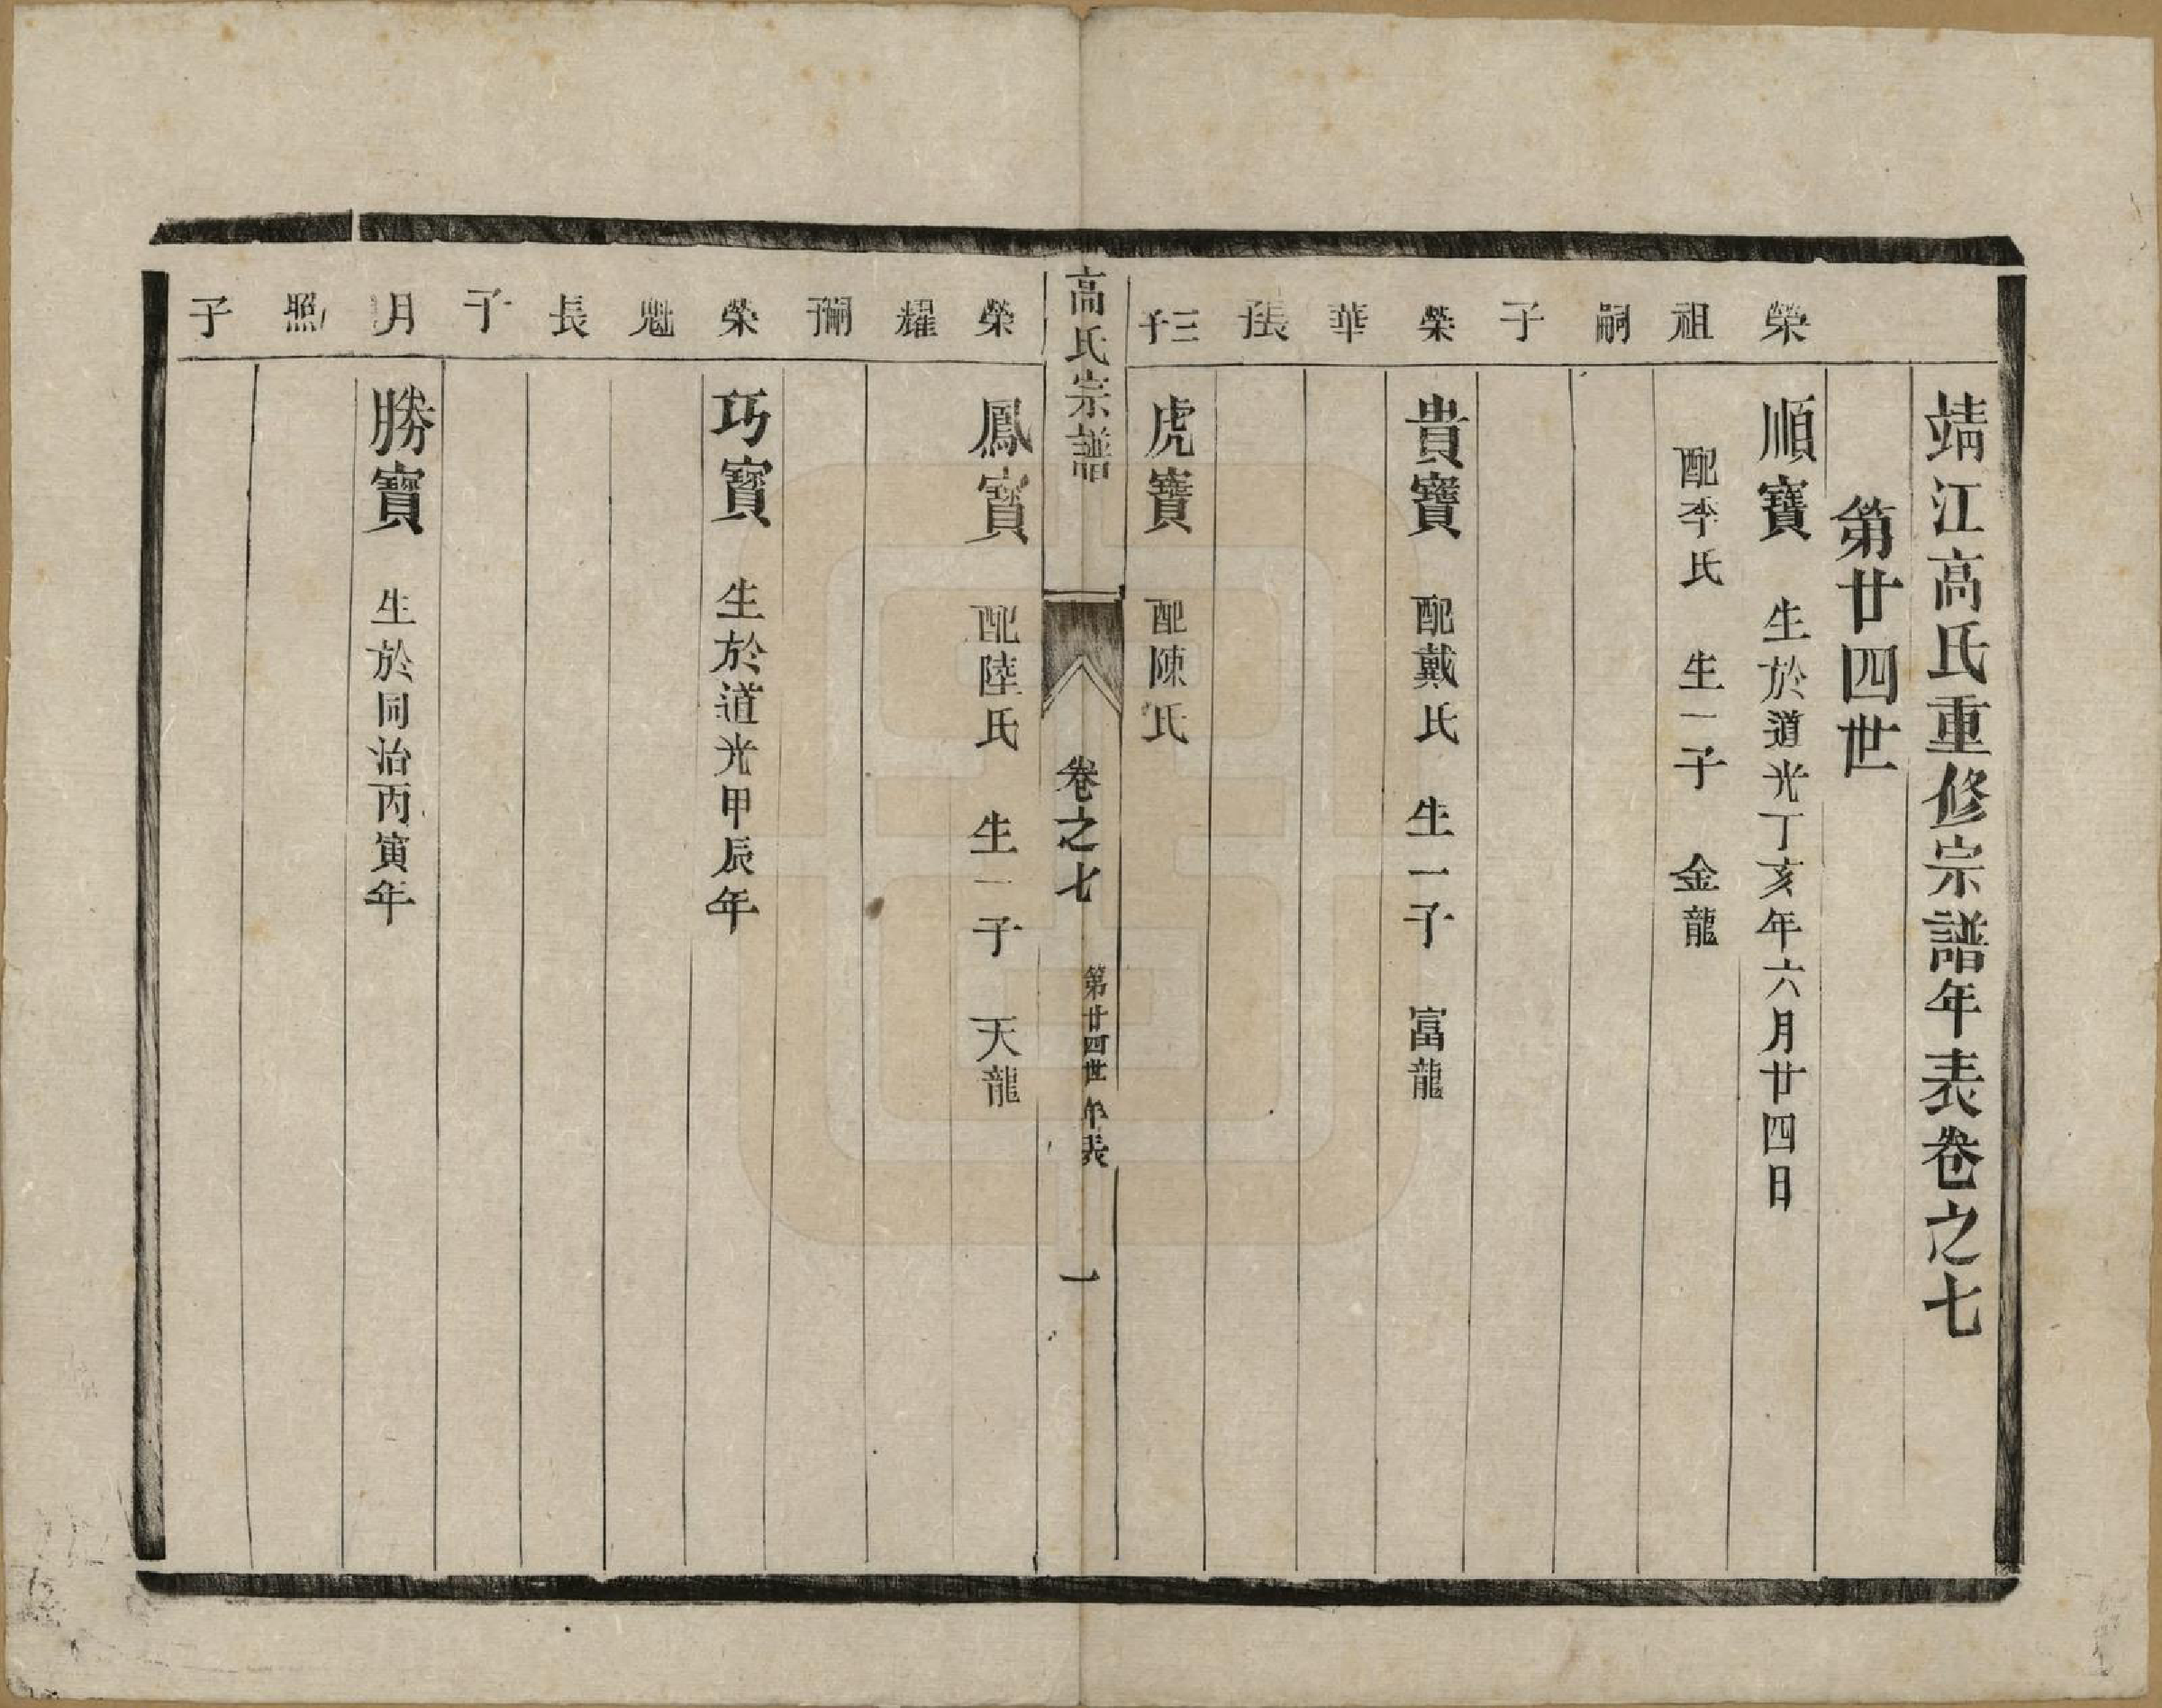 靖江高氏重修宗譜年表卷之七
第廿四世
榮祖嗣子
順寶 生於道光丁亥年六月廿四日
配李氏 生一子 金龍
榮華長子
貴寶 配戴氏 生一子 富龍
三子
虎寶 配陳氏
高氏宗譜 卷之七 第廿四世年表 一
榮耀嗣子
鳳寶 配陸氏 生一子 天龍
榮魁長子
巧寶 生於道光甲辰年
月照子
勝寶 生於同治丙寅年